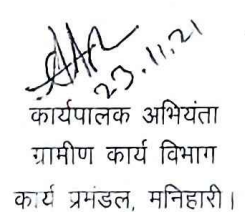 23.11.21
कार्यपालक अभियंता
ग्रामीण कार्य विभाग
कार्य प्रमंडल, मनिहारी।